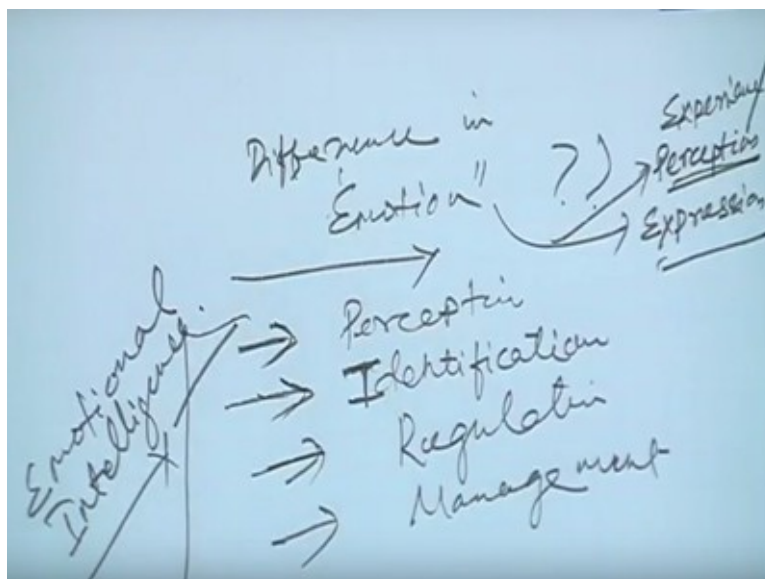 Difference in
"Emotion" ??
Experience/
Perception
Expression
Emotional
Intelligence.
Perceptin
Identification
Regulatin
Management